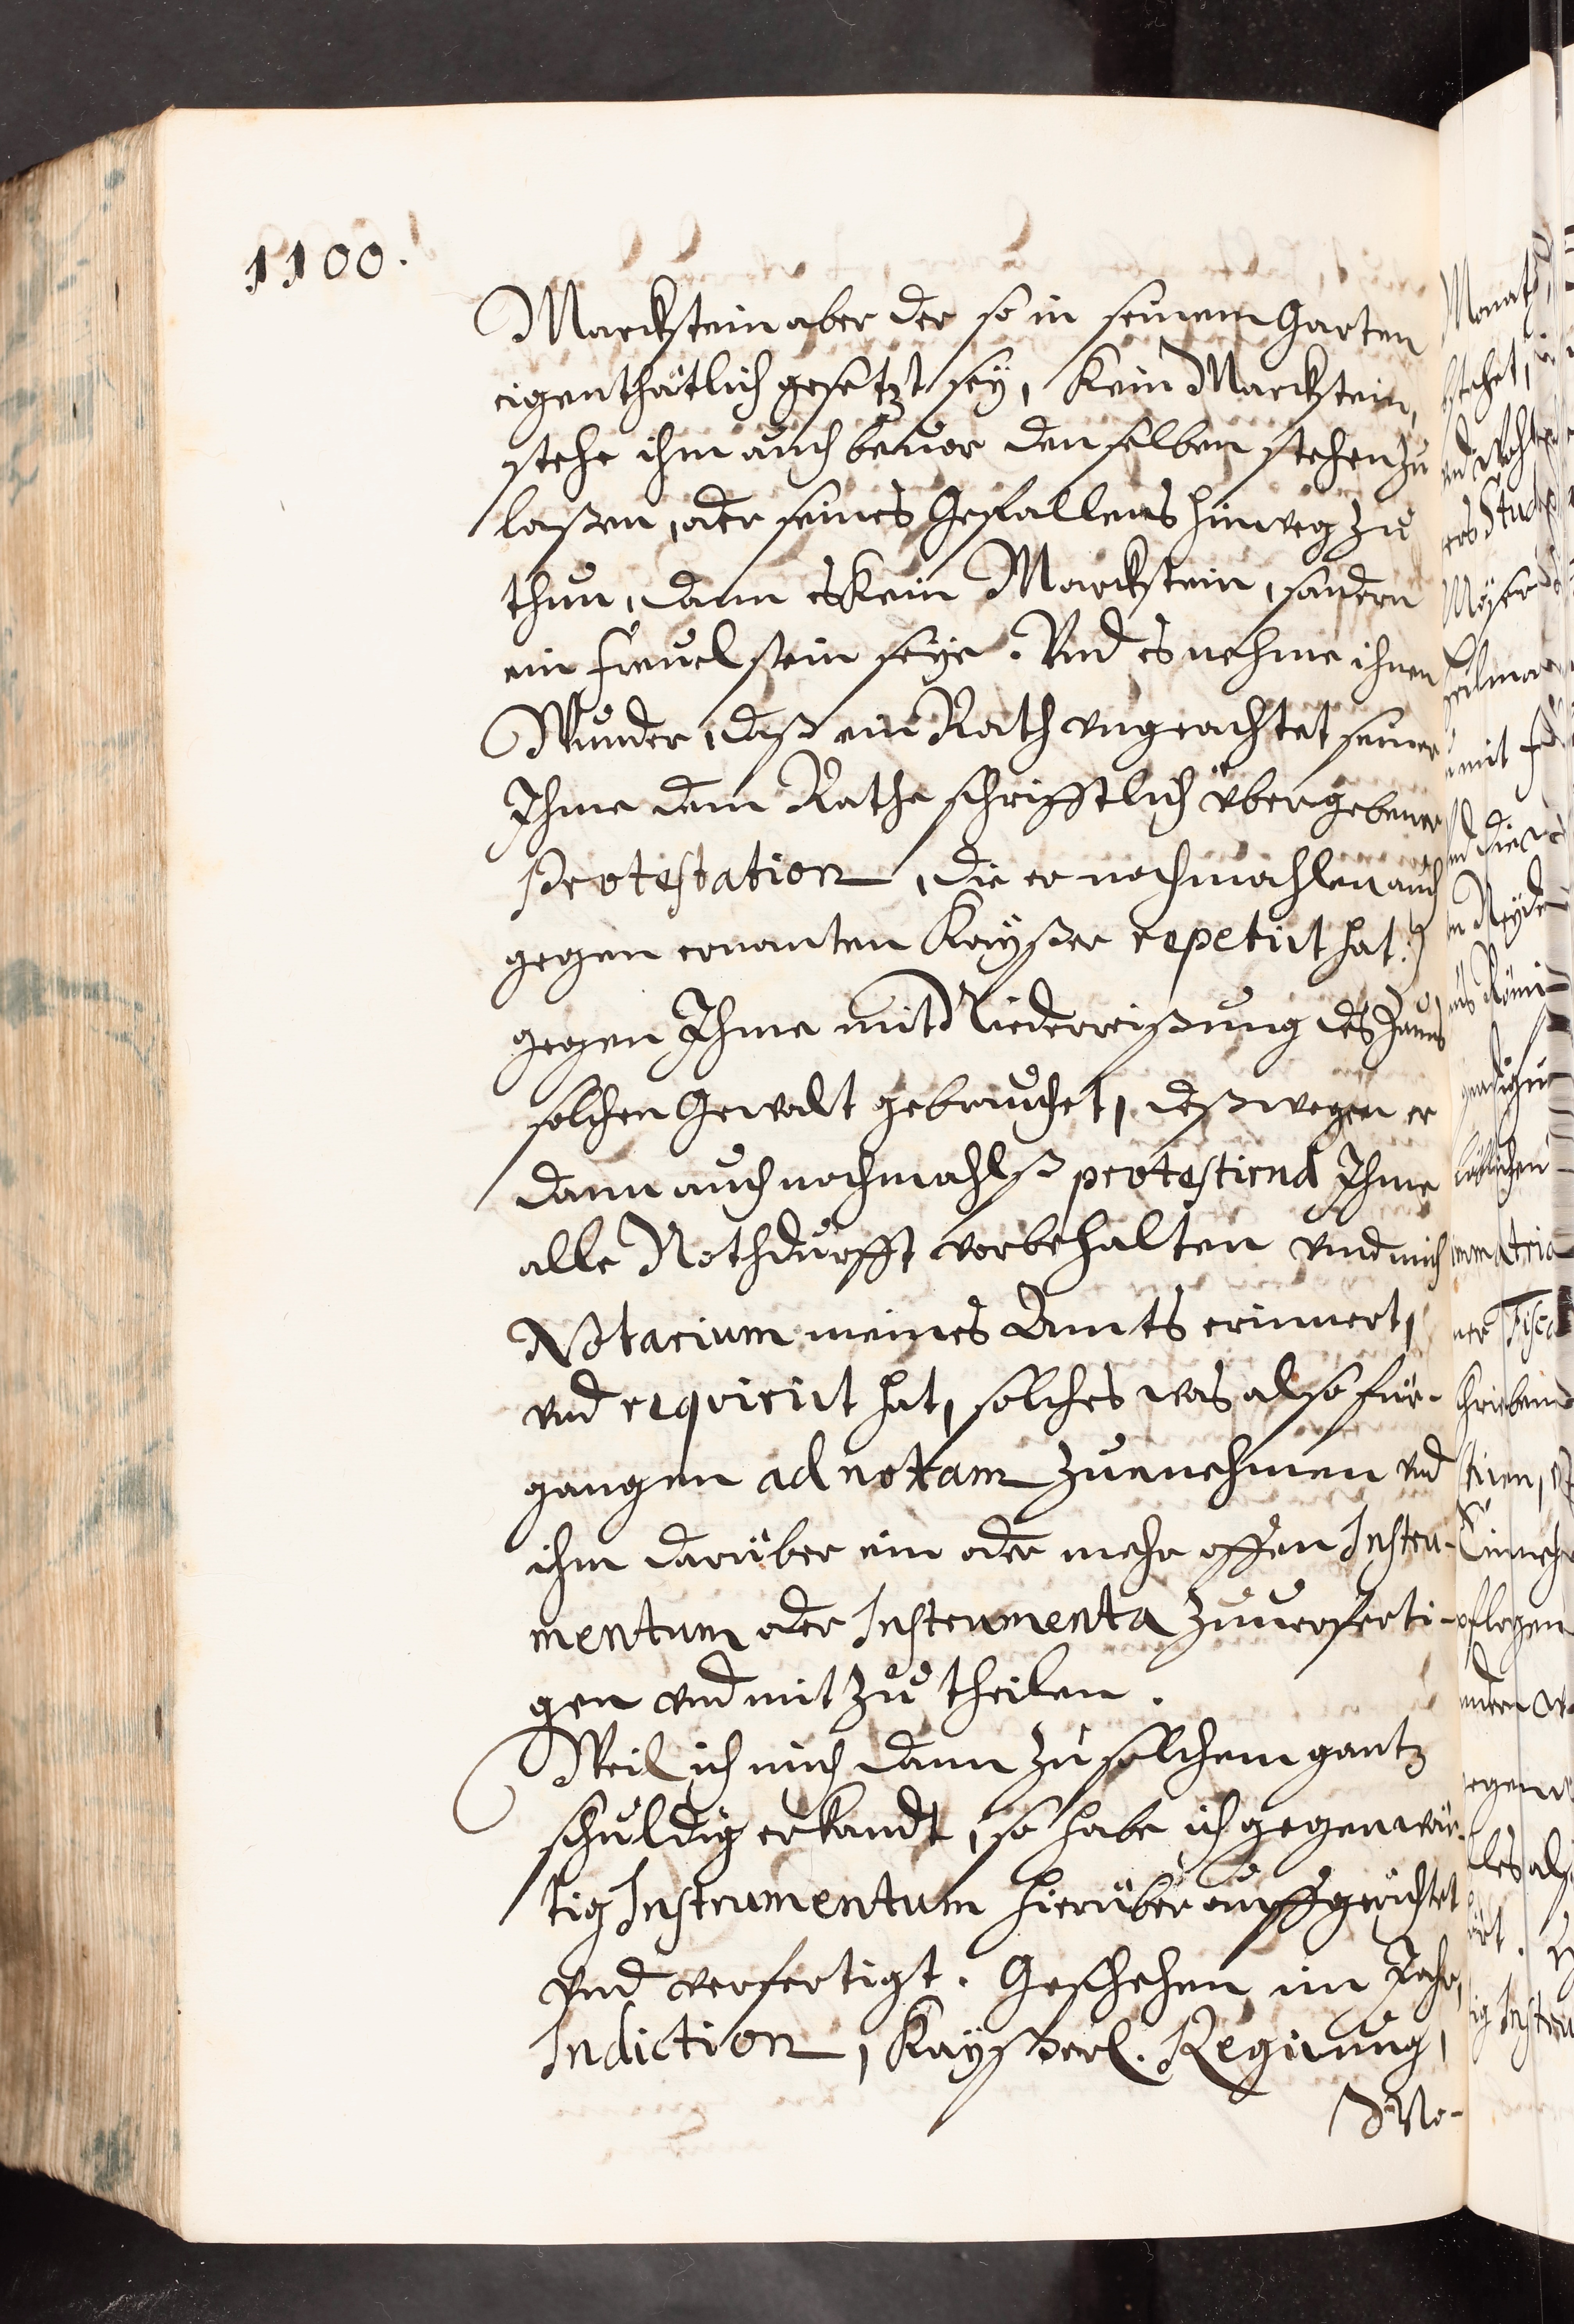 1100.
Marckstein aber der so in seinem Garten
eigenthätlich gesetzt seÿ, kein Marckstein,
stehe ihm auch beuor denselben stehen zu
laßen, oder seines Gefallens hinweg zu
thun, dann es kein Marckstein, sondern
ein freuel stein seÿe. Vnd es nehme ihnen
Wunder, daß ein Rath vngeachtet seiner
Ihme dem Rathe schrifftlich übergebener
Protestation, die er nochmahlen auch
gegen ernanten Kaÿßer repetirt hat:)
gegen Ihme mit Niederreißung des Zauns
solchen Gewalt gebrauchet, deßwegen er
dann auch nochmahlß protestirnd Ihme
alle Nothdurfft vorbehalten vnd mich
Notarium meines Ambts erinnert,
vnd requirirt hat, solches was also für-
gangen ad notam zu nehmen vnd
ihm darüber ein oder mehr offen Instru-
mentum oder Instrumenta zuuerferti-
gen vnd mit zu theilen.
Weil ich mich dann zu solchem gantz
schuldig erkandt, so habe ich gegenwär-
tig Instrumentum hierüber auffgerichtet
vnd verfertigt. Geschehen im Jahr,
Indiction, Kaÿßerl. Regirung,
Mo-